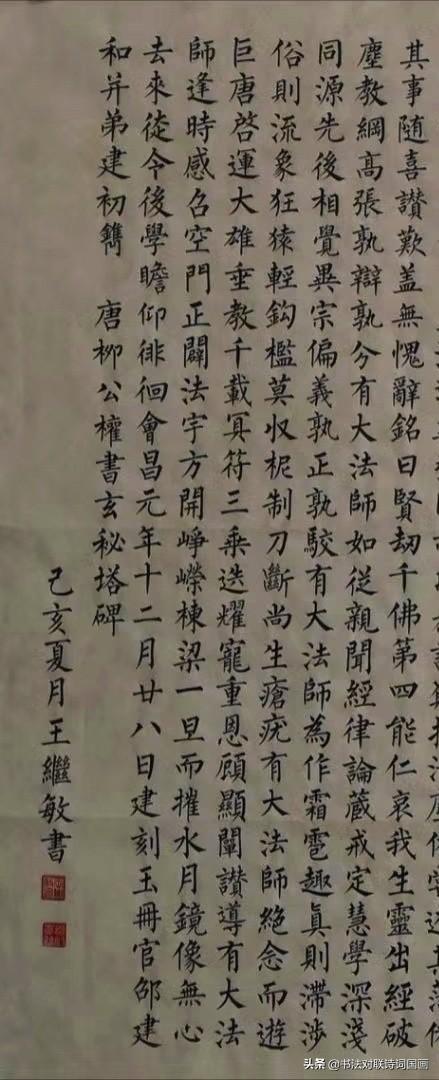 其事随喜讚歎盖無愧辭銘曰賢劫千佛第四能仁哀我生靈出經破
塵教網高張孰辯孰分有大法師如從親聞經律論蔵戒定慧學深淺
同源先後相覺異宗偏義孰正孰駮有大法師為作霜雹趣真則滯涉
俗則流象狂猿輕鈎檻莫収柅制刀斷尚生瘡疣有大法師絶念而遊
巨唐啓運大雄垂教千載冥符三乗迭耀寵重恩顧顯闡讚導有大法
師逢時感召空門正闢法宇方開崢嶸棟梁一旦而摧水月鏡像無心
去來徒令後學瞻仰徘徊會昌元年十二月廿八日建刻玉冊官邵建
和并弟建初鐫 唐柳公權書玄秘塔碑
己亥夏月王繼敏書
头条 @书法对联诗词国画